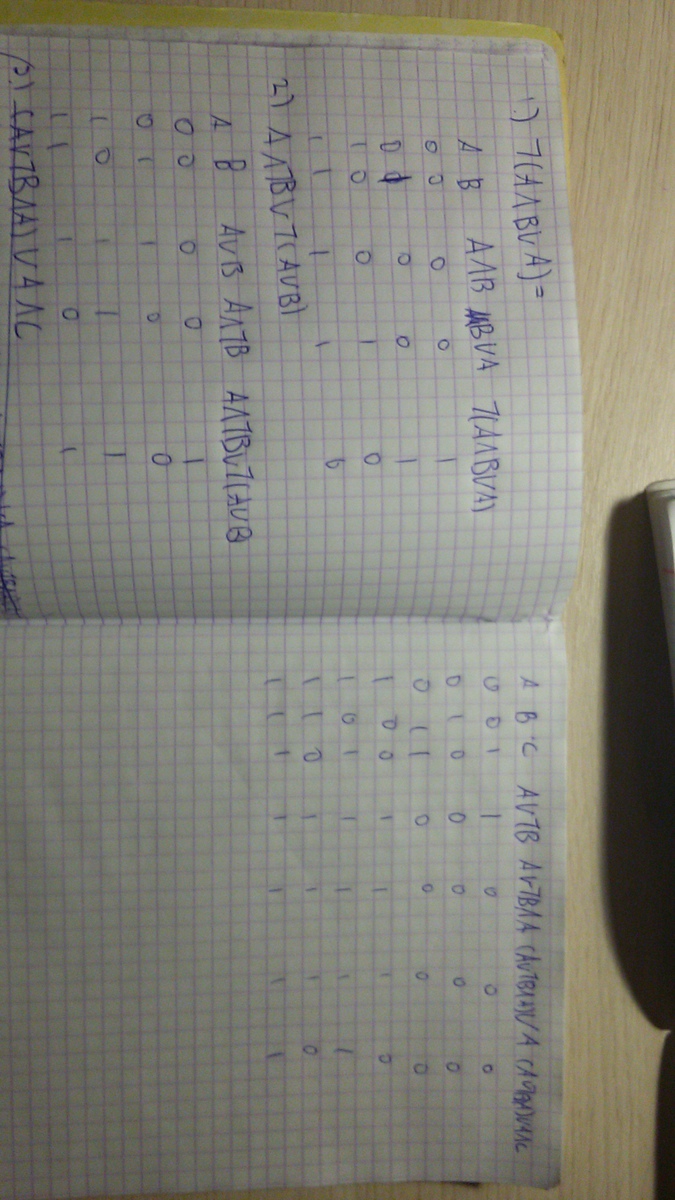 1.) ⅂(A∧B∨A)=
A B A∧B A∧B∨A ⅂(A∧B∨A)
0 0 0 0 1
0 1 0 0 1
1 0 0 1 0
1 1 1 1 0
2) A∧⅂B∨⅂(A∪B)
A B A∪B A∧⅂B A∧⅂B∨⅂(A∪B)
0 0 0 0 1
0 1 1 0 0
1 0 1 1 1
1 1 1 0 1
3.) (A∨⅂B∧A)∨A∧C
A B C A∨⅂B A∨⅂B∧A (A∨⅂B∧A)∨A
0 0 1 1 0 0 0
0 1 0 0 0 0 0
0 1 1 0 0 0 0
1 0 0 1 1 1 0
1 0 1 1 1 1 1
1 1 0 1 1 1 0
1 1 1 1 1 1 1